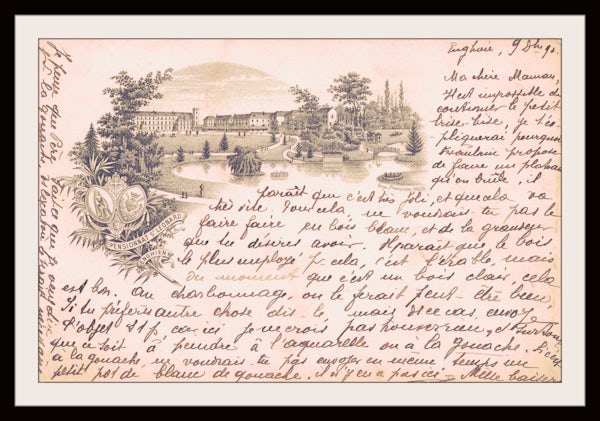 Enghien, 9 Dbre 90.
Ma chère Maman,
Il est impossible de
continuer le petit
brise-bise, je t'ex-
pliquerai pourquoi
Fraülein propose
de faire un plateau
qu'on brûle, il
paraît que c'est très joli, et que cela va
très vite. Pour cela ne voudrais tu pas le
faire faire en bois blanc, et de la grandeur
que tu désires avoir. Il paraît que le bois
le plus employé pr cela, c'est l'érable, mais
du moment que c'est un bois clair, cela
est bon. Au charbonnage, on le ferait peut-être bien,
Si tu préfères autre chose dis le, mais en ce cas, envoie
l'objet S.t.p. car ici je ne crois pas
que ce soit à peindre à l'aquarelle ou à la gouache. Si c'est
à la gouache, ne voudrais tu pas envoyer en même temps un
petit pot de blanc de gouache, il n'y en a pas ici - Mille baisers
PENSIONNAT ST LEONARD
ENGHIEN
Je pense que
Fais ce que je vous dis